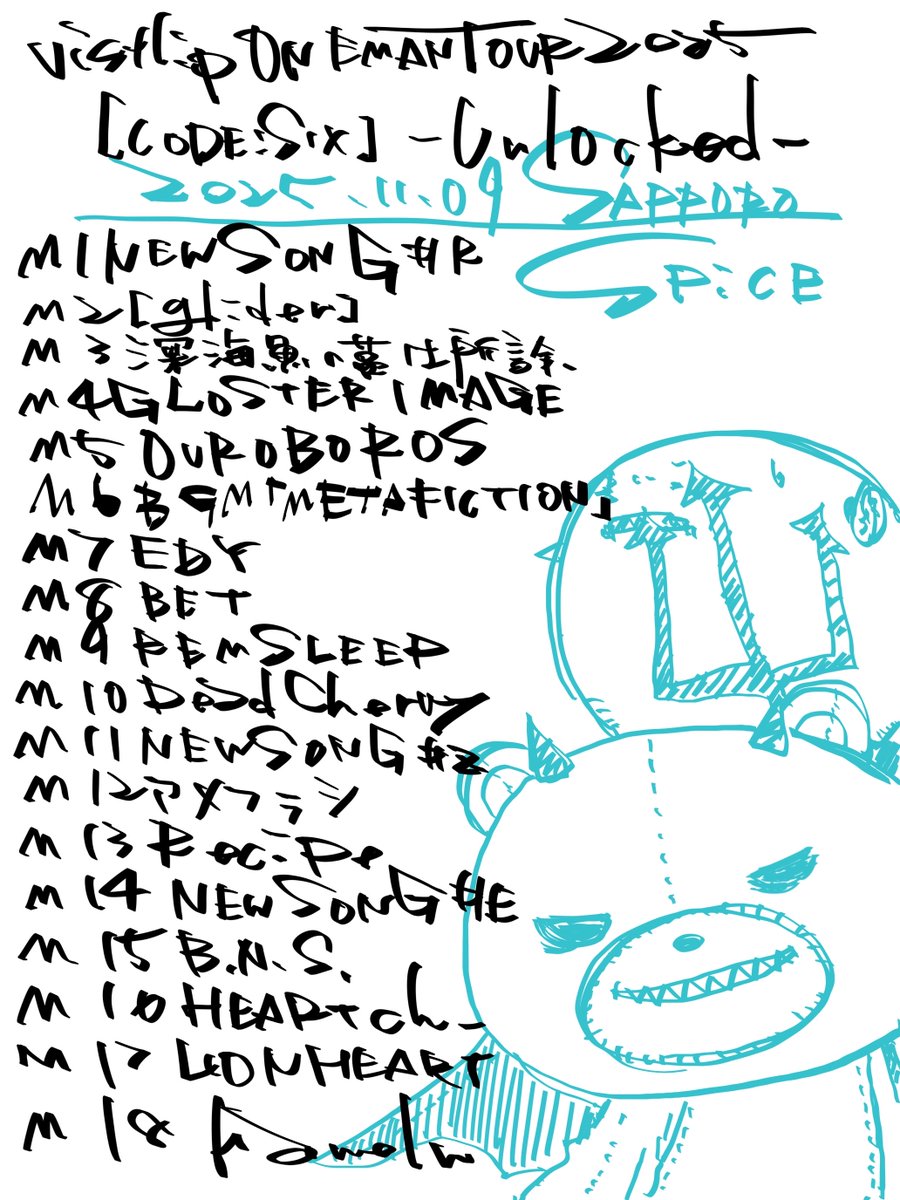 vistlip ONEMAN TOUR 2025
[CODE:SiX] -Unlocked-
2025.11.09 SAPPORO
SPiCE
M1 NEW SONG #R
M2 [glider]
M3 深海魚の夢は所詮、
M4 GLOSTER IMAGE
M5 OUROBOROS
M6 BGM「METAFICTION」
M7 EDY
M8 BET
M9 REM SLEEP
M10 Dead Cherry
M11 NEW SONG #2
M12 アメフラシ
M13 Recipe
M14 NEW SONG #E
M15 B.N.S.
M16 HEART ch_
M17 LION HEART
M18